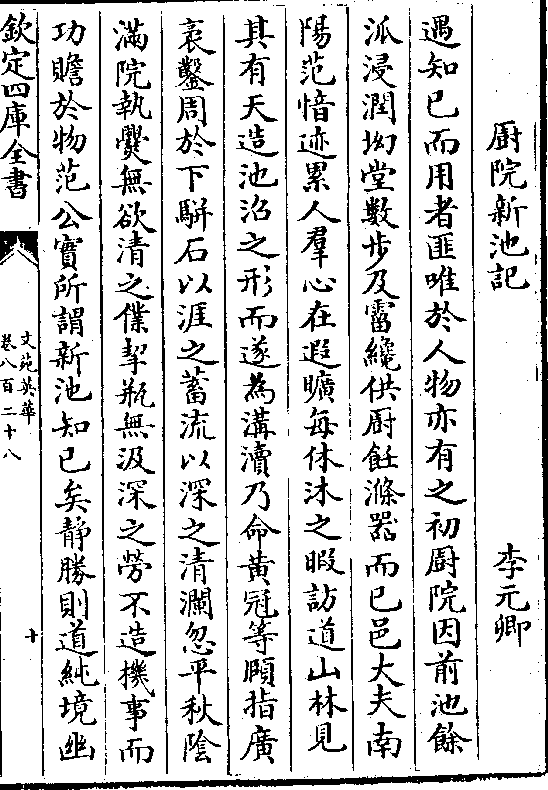 厨院新池記 李元卿
遇知已而用者匪唯於人物亦有之初厨院因前池餘
泒浸潤坳堂數步及霤纔供厨飪滌器而已邑大夫南
陽范愔迹累人羣心在遐曠每休沐之暇訪道山林見
其有天造池沼之形而遂為溝瀆乃命黄冠等頤指廣
袤鑿周於下駢石以涯之蓄流以深之清瀾忽平秋陰
滿院執爨無欲清之僕挈瓶無汲深之勞不造機事而
功贍於物范公實所謂新池知已矣静勝則道純境幽
欽定四庫全書
文苑英華
卷八百二十八
十